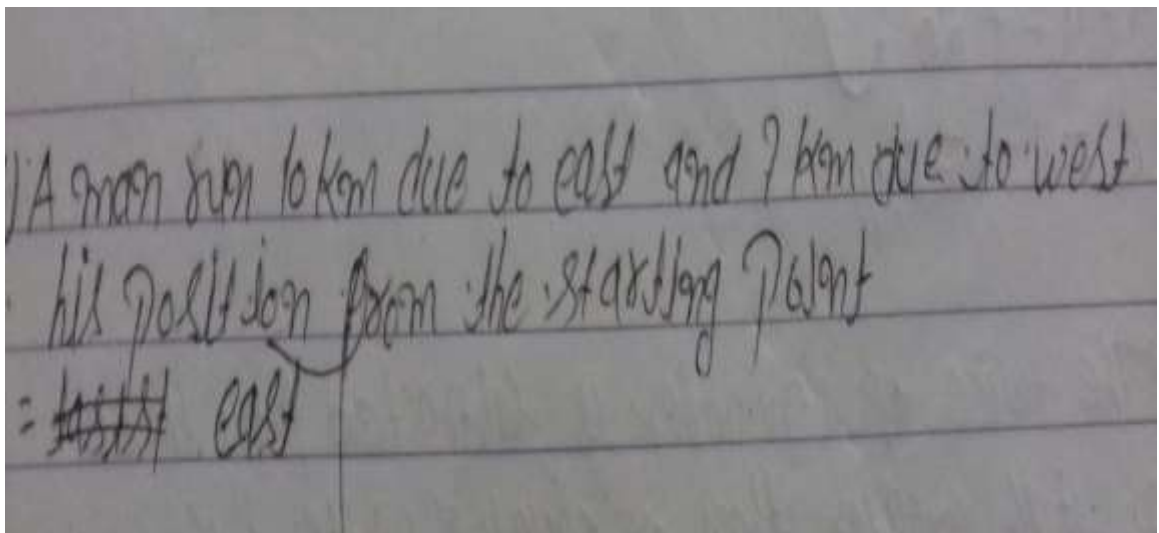 1) A man run 10 km due to east and 7 km due to west
his position from the starting Point
= east